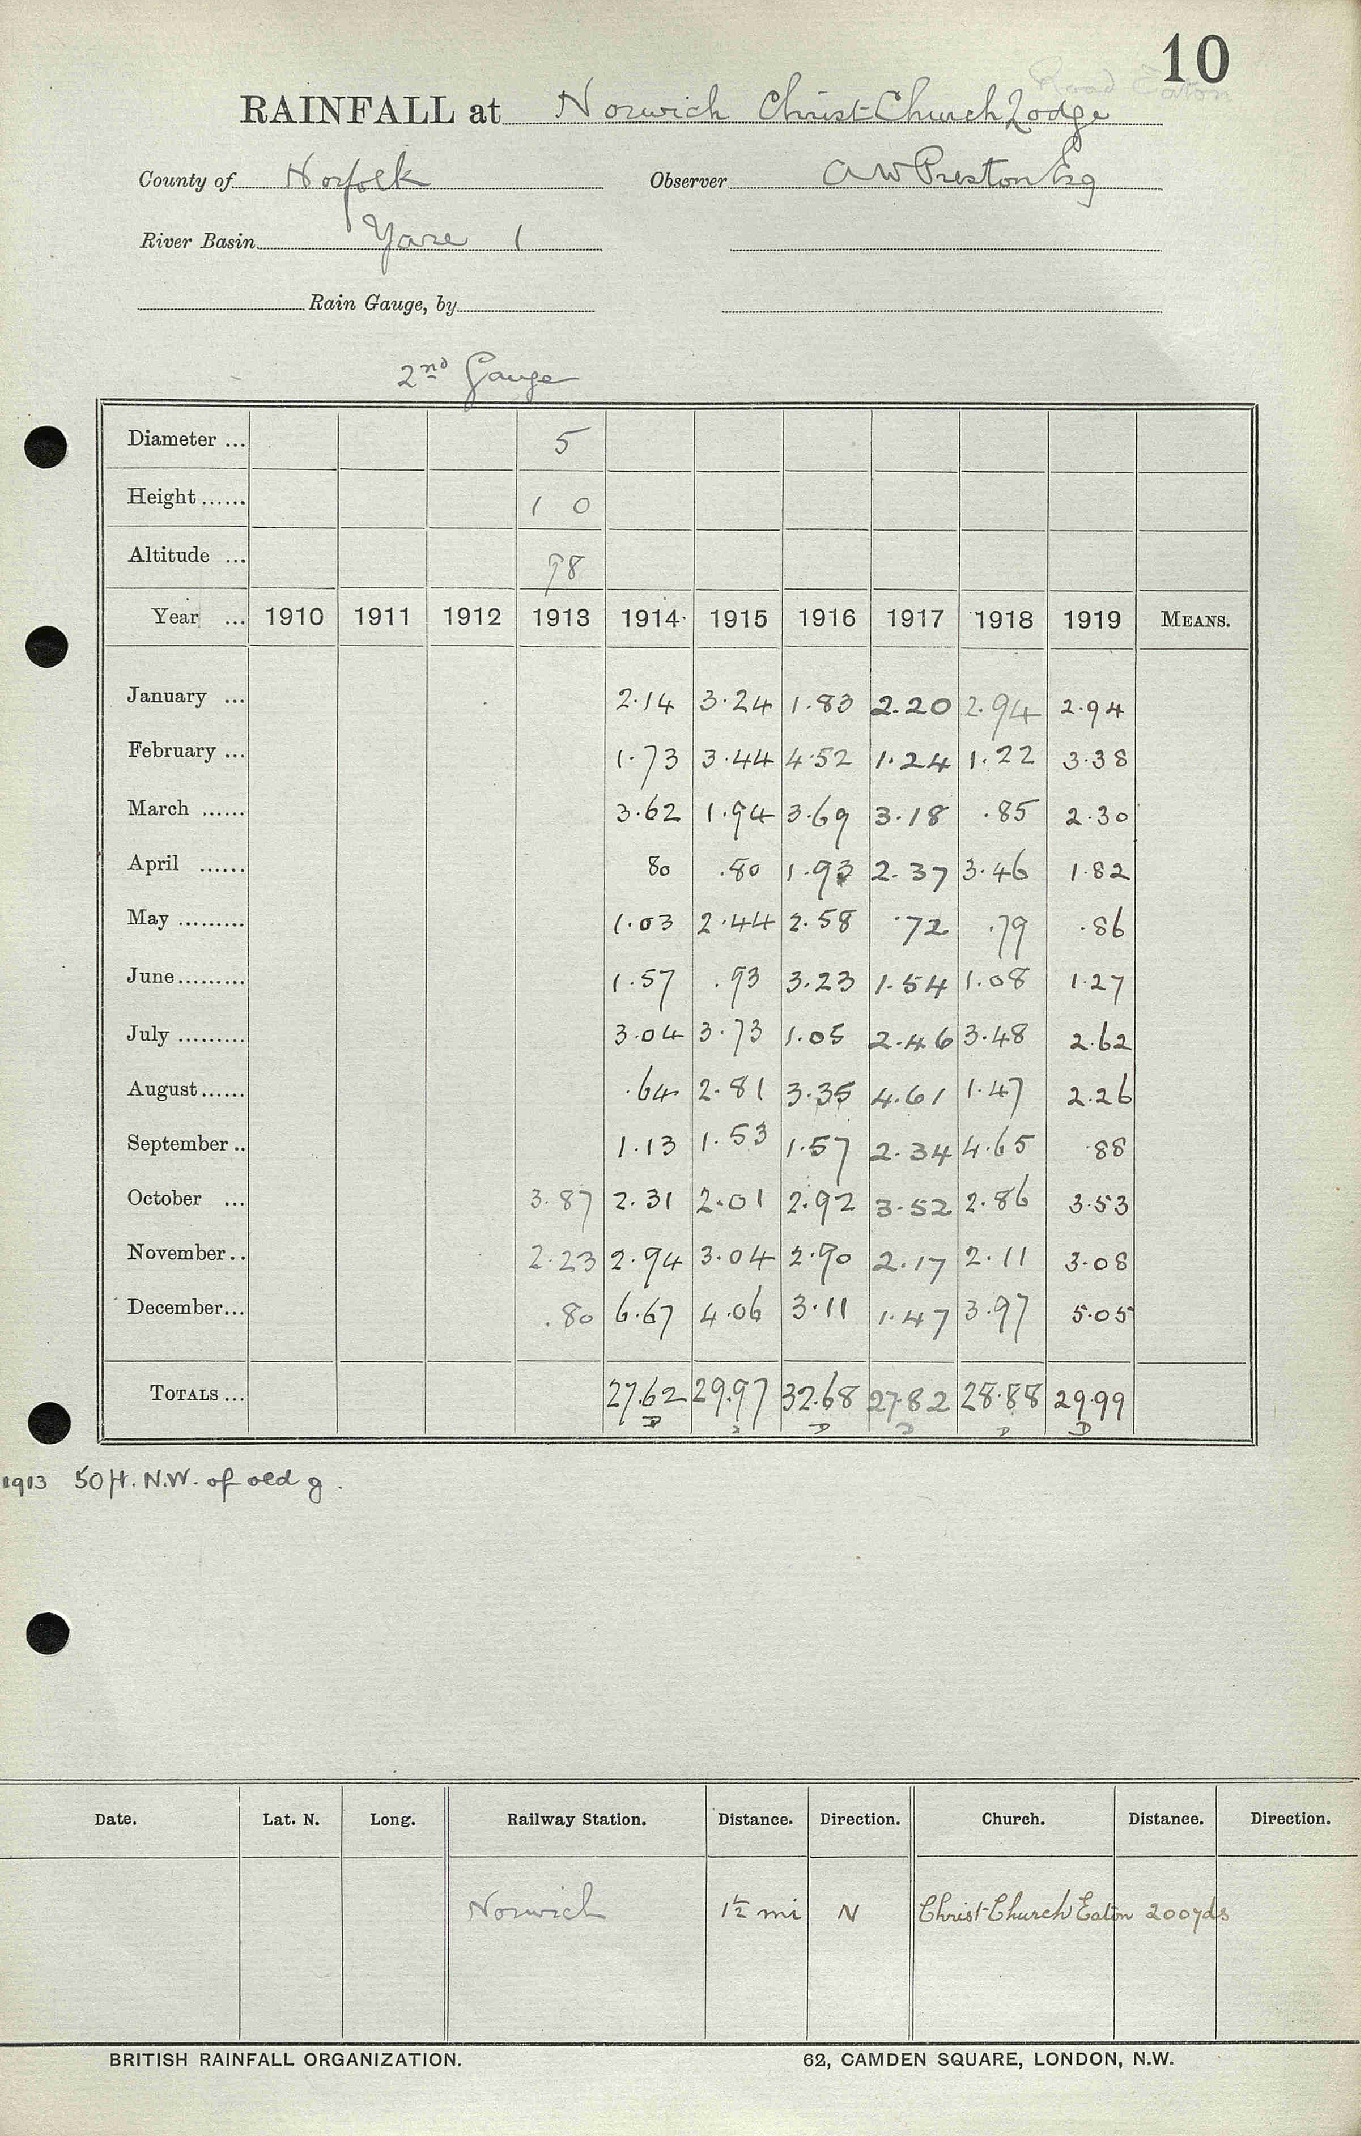 10
Road Eaton
RAINFALL at Norwich Christ Church Lodge
County of Norfolk Observer A W Preston Esq
River Basin Yare 1
Rain Gauge, by
2nd Gauge
Diameter ... 5
Height ...... 1 0
Altitude ... 98
Year ... 1910 1911 1912 1913 1914 1915 1916 1917 1918 1919 MEANS.
January ... 2.14 3.24 1.83 2.20 2.94 2.94
February ... 1.73 3.44 4.52 1.24 1.22 3.38
March ...... 3.62 1.94 3.69 3.18 .85 2.30
April ...... 80 .80 1.93 2.37 3.46 1.82
May ......... 1.03 2.44 2.58 .72 .79 .86
June......... 1.57 .93 3.23 1.54 1.08 1.27
July ......... 3.04 3.73 1.05 2.46 3.48 2.62
August...... .64 2.81 3.35 4.61 1.47 2.26
September .. 1.13 1.53 1.57 2.34 4.65 .88
October ... 3.87 2.31 2.01 2.92 3.52 2.86 3.53
November.. 2.23 2.94 3.04 2.90 2.17 2.11 3.08
December... .80 6.67 4.06 3.11 1.47 3.97 5.05
TOTALS ... 27.62 29.97 32.68 27.82 28.88 29.99
D D D D D
1913 50 ft. N.W. of old g.
Date. Lat. N. Long. Railway Station. Distance. Direction. Church. Distance. Direction.
Norwich 1½ mi N Christ Church Eaton 200 yds
BRITISH RAINFALL ORGANIZATION. 62, CAMDEN SQUARE, LONDON, N.W.